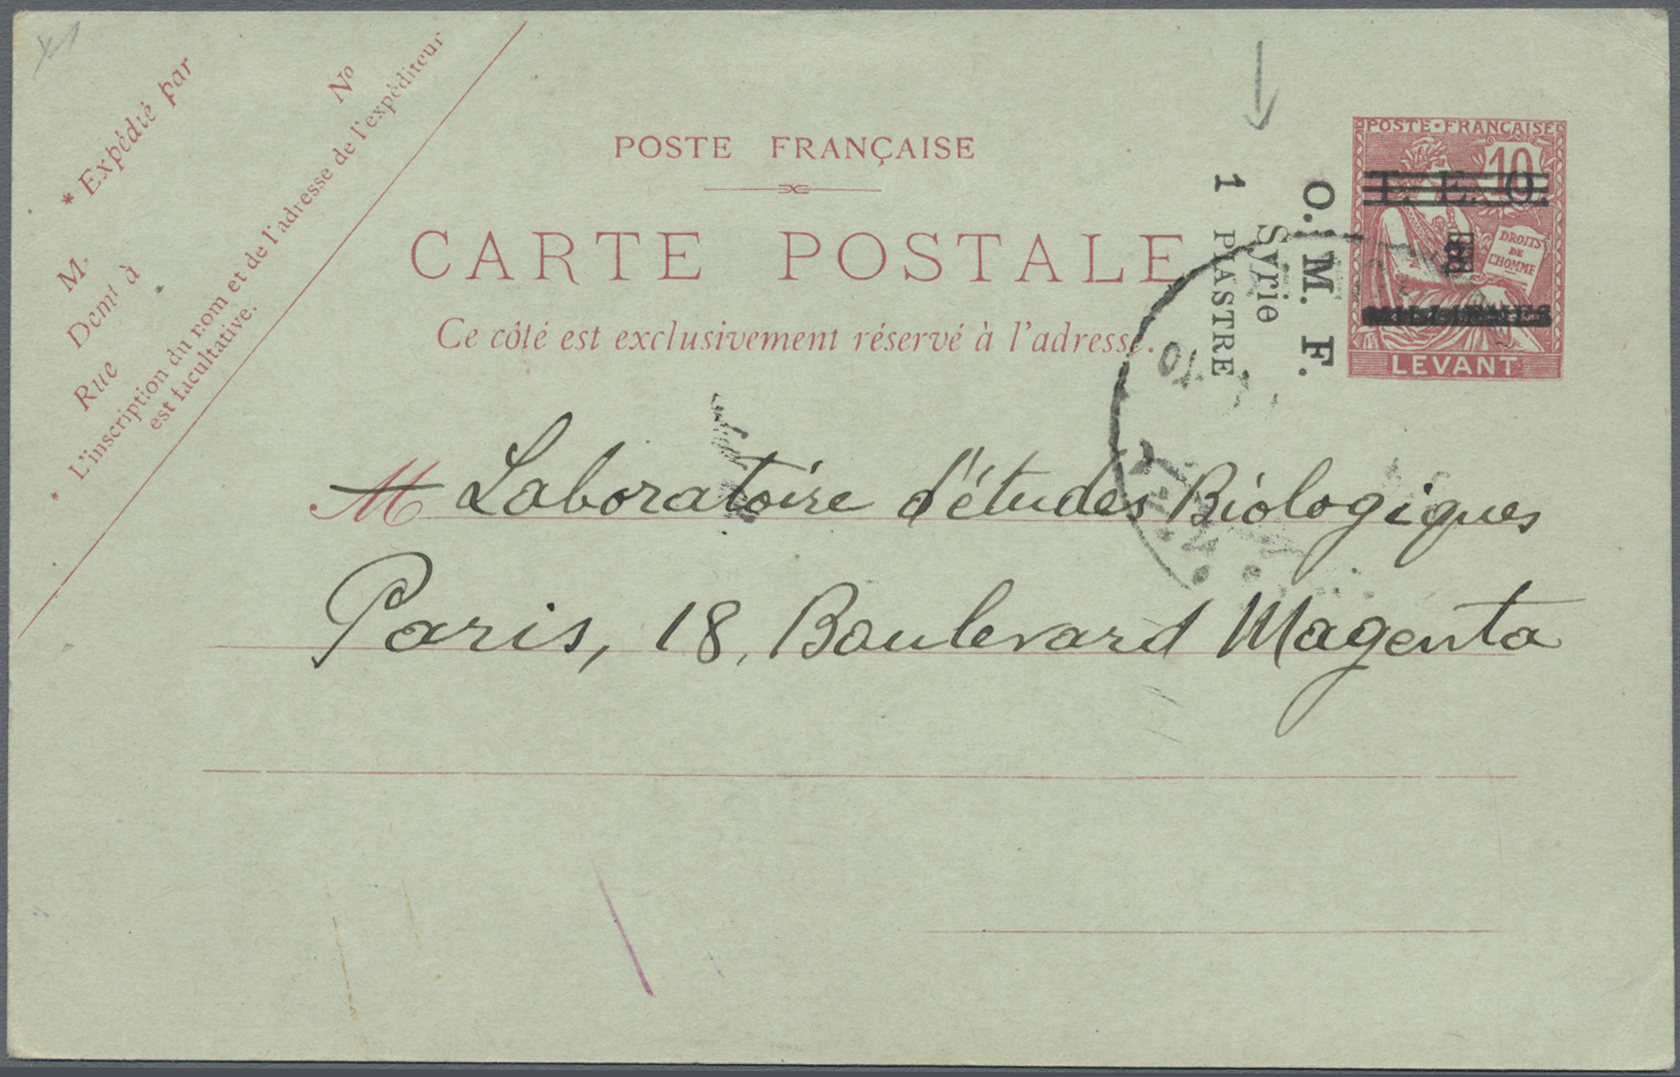 * Expédié par
M.
Demt à
Rue
No
* L'inscription du nom et de l'adresse de l'expéditeur
est facultative.
POSTE FRANÇAISE
CARTE POSTALE
Ce côté est exclusivement réservé à l'adresse.
O. M. F.
Syrie
1 PIASTRE
POSTE FRANÇAISE
10
T. E. O.
DROITS
DE
L'HOMME
MILLIEMES
LEVANT
M Laboratoire d'études Biologiques
Paris, 18, Boulevard Magenta